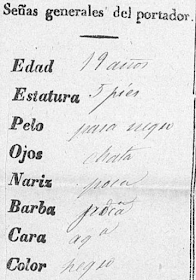 Señas generales del portador.
Edad 19 años
Estatura 5 pies
Pelo pasa negro
Ojos
Nariz chata
Barba poca
Cara
Color negro